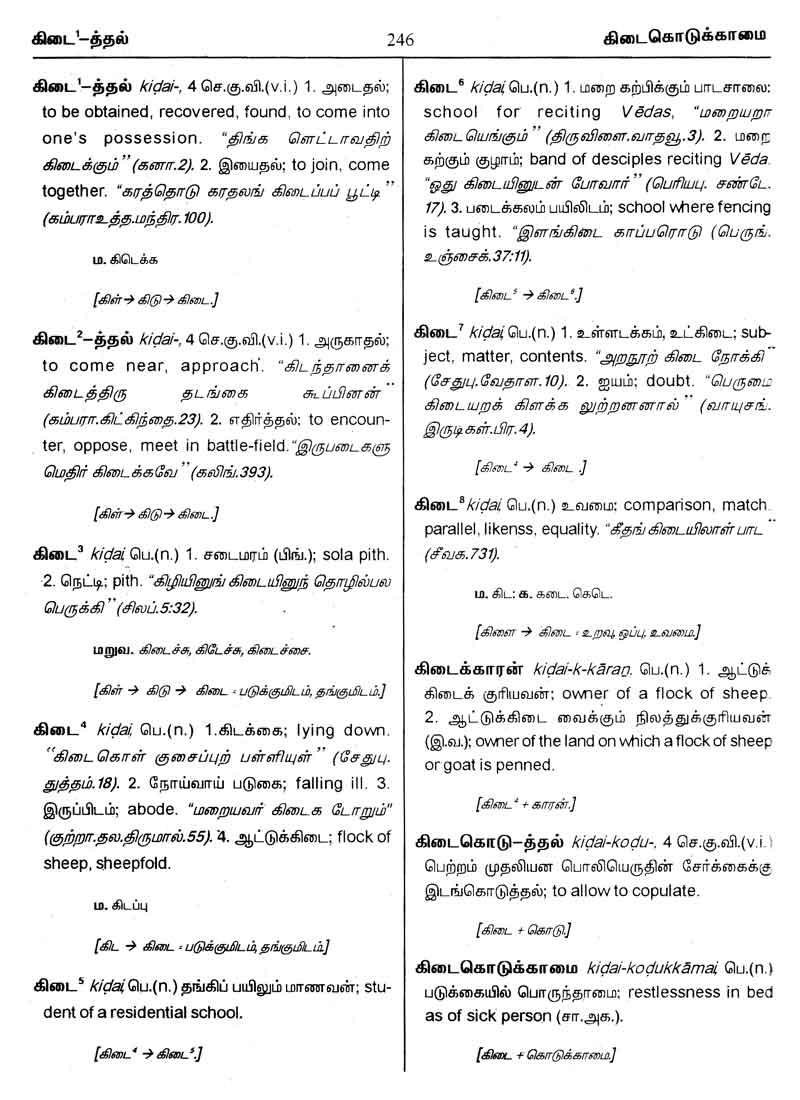 கிடை¹–த்தல்
246
கிடைகொடுக்காமை
கிடை¹–த்தல் kiḍai-, 4 செ.கு.வி.(v.i.) 1. அடைதல்;
to be obtained, recovered, found, to come into
one's possession. “திங்க ளெட்டாவதிற்
கிடைக்கும்”(கனா.2). 2. இயைதல்; to join, come
together. “கரத்தொடு கரதலங் கிடைப்பப் பூட்டி”
(கம்பராஉத்த.மந்திர.100).
ம. கிடெக்க
[கிள்→ கிடு→ கிடை.]
கிடை²–த்தல் kiḍai-, 4 செ.கு.வி.(v.i.) 1. அருகாதல்;
to come near, approach. “கிடந்தானைக்
கிடைத்திரு தடங்கை கூப்பினன்”
(கம்பரா.கிட்கிந்தை.23). 2. எதிர்த்தல்; to encoun-
ter, oppose, meet in battle-field.“இருபடைகளு
மெதிர் கிடைக்கவே”(கலிங்.393).
[கிள்→ கிடு→ கிடை.]
கிடை³ kiḍai, பெ.(n.) 1. சடைமரம் (பிங்.); sola pith.
2. நெட்டி; pith. “கிழியினுங் கிடையினுந் தொழில்பல
பெருக்கி”(சிலப்.5:32).
மறுவ. கிடைச்சு, கிடேச்சு, கிடைச்சை.
[கிள் → கிடு → கிடை = படுக்குமிடம், தங்குமிடம்.]
கிடை⁴ kiḍai, பெ.(n.) 1.கிடக்கை; lying down.
“கிடைகொள் குசைப்புற் பள்ளியுள்” (சேதுபு.
துத்தம்.18). 2. நோய்வாய் படுகை; falling ill. 3.
இருப்பிடம்; abode. “மறையவர் கிடைக டோறும்”
(குற்றா.தல.திருமால்.55). 4. ஆட்டுக்கிடை; flock of
sheep, sheepfold.
ம. கிடப்பு
[கிட → கிடை = படுக்குமிடம், தங்குமிடம்.]
கிடை⁵ kiḍai, பெ.(n.) தங்கிப் பயிலும் மாணவன்; stu-
dent of a residential school.
[கிடை⁴ → கிடை⁵.]
கிடை⁶ kiḍai, பெ.(n.) 1. மறை கற்பிக்கும் பாடசாலை;
school for reciting Vēdas, “மறையறா
கிடையெங்கும்” (திருவிளை.வாதவூ.3). 2. மறை
கற்கும் குழாம்; band of desciples reciting Vēda.
“ஒது கிடையினுடன் போவார்” (பெரியபு. சண்டே.
17). 3. படைக்கலம் பயிலிடம்; school where fencing
is taught. “இளங்கிடை காப்பரொடு (பெருங்.
உஞ்சைக்.37:11).
[கிடை⁵ → கிடை⁶.]
கிடை⁷ kiḍai, பெ.(n.) 1. உள்ளடக்கம், உட்கிடை; sub-
ject, matter, contents. “அறநூற் கிடை நோக்கி”
(சேதுபு.வேதாள.10). 2. ஐயம்; doubt. “பெருமை
கிடையறக் கிளக்க லுற்றனனால்” (வாயுசங்.
இருடிகள்.பிர.4).
[கிடை⁴ → கிடை .]
கிடை⁸ kiḍai, பெ.(n.) உவமை; comparison, match.
parallel, likenss, equality. “கீதங் கிடையிலாள் பாட”
(சீவக.731).
ம. கிட: க. கடை. கெடெ.
[கிளை → கிடை = உறவு, ஒப்பு, உவமை.]
கிடைக்காரன் kiḍai-k-kāraṉ, பெ.(n.) 1. ஆட்டுக்
கிடைக் குரியவன்; owner of a flock of sheep.
2. ஆட்டுக்கிடை வைக்கும் நிலத்துக்குரியவன்
(இ.வ.); owner of the land on which a flock of sheep
or goat is penned.
[கிடை⁴ + காரன்.]
கிடைகொடு–த்தல் kiḍai-koḍu-, 4 செ.கு.வி.(v.i.)
பெற்றம் முதலியன பொலியெருதின் சேர்க்கைக்கு
இடங்கொடுத்தல்; to allow to copulate.
[கிடை + கொடு.]
கிடைகொடுக்காமை kiḍai-koḍukkāmai, பெ.(n.)
படுக்கையில் பொருந்தாமை; restlessness in bed
as of sick person (சா.அக.).
[கிடை + கொடுக்காமை.]